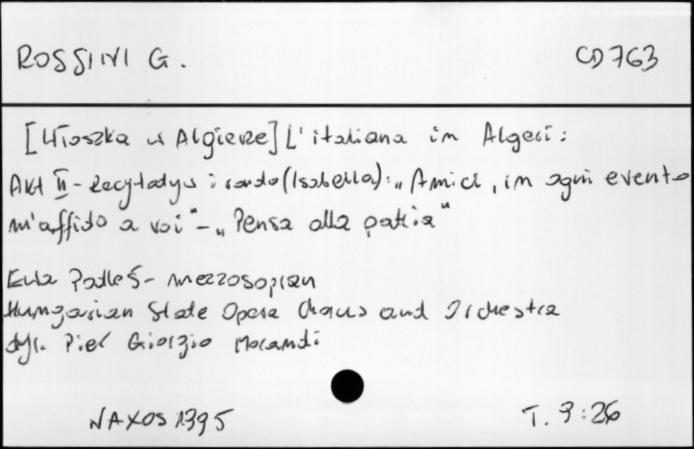 ROSSINI G. CD 763
[Włoszka w Algierze] L'italiana in Algeri:
Akt II - Recytatyw i rondo (Isabella): „Amici, in ogni evento
m'affido a voi" - „Pensa alla patria"
Ewa Podleś - mezzosopran
Hungarian State Opera Chorus and Orchestra
dyr. Pier Giorgio Morandi
NAXOS 1395 T. 9:26